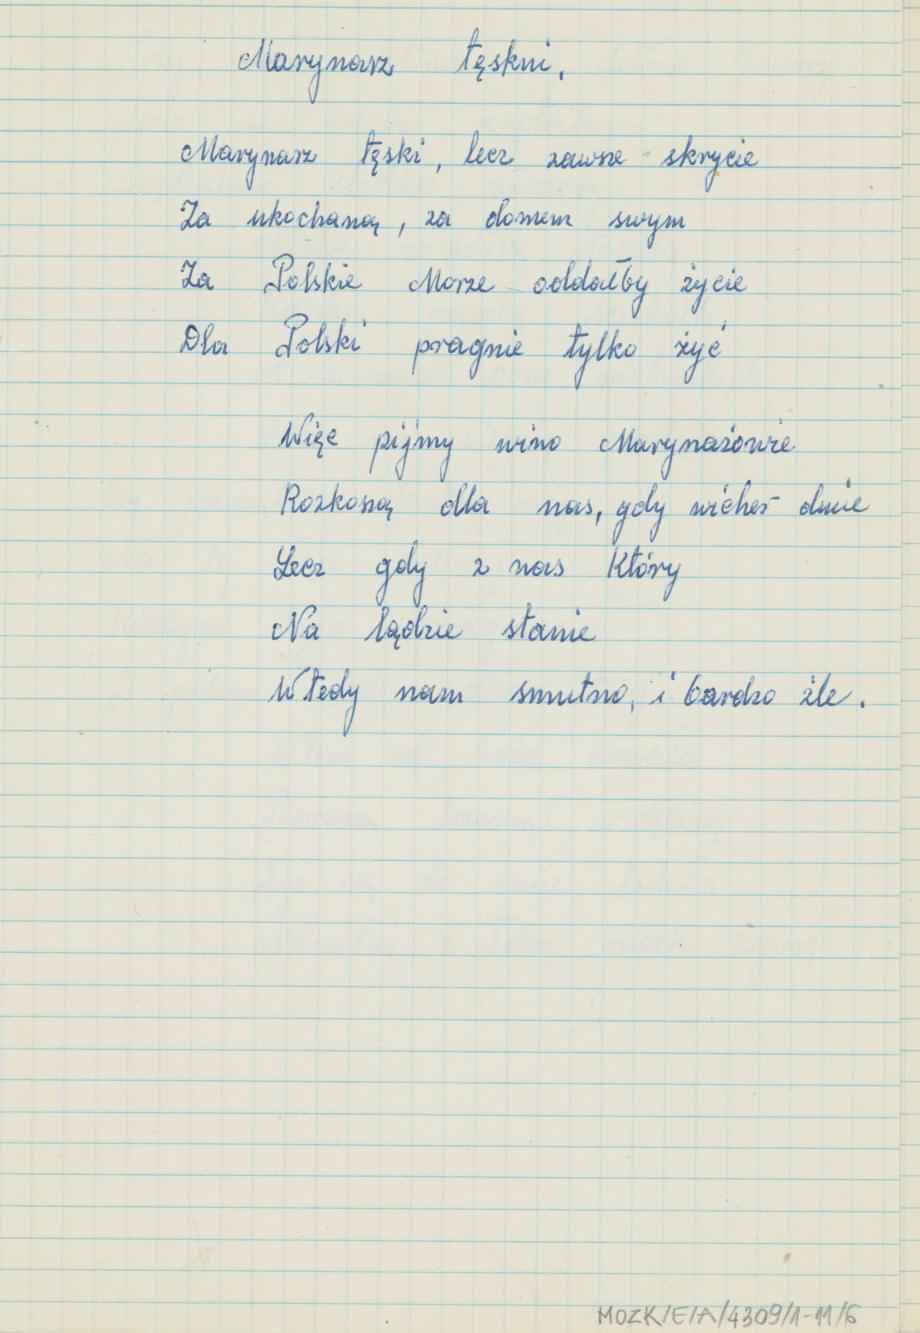 Marynarz tęskni.
Marynarz tęski, lecz zawsze skrycie
Za ukochaną, za domem swym
Za Polskie Morze oddałby życie
Dla Polski pragnie tylko żyć
Więc pijmy wino Marynażowie
Rozkoszą dla nas, gdy wicher dmie
Lecz gdy z nas Który
Na lądzie stanie
Wtedy nam smutno, i bardzo źle.
MOZK/E/A/4309/1-11/6